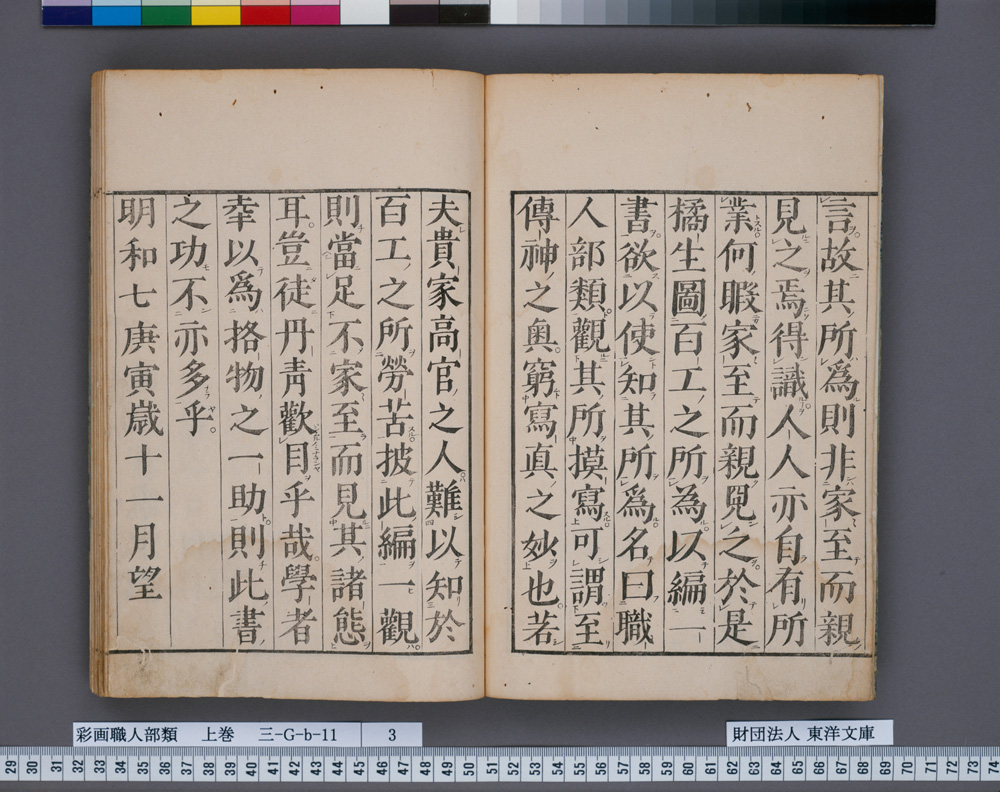 言故其所為則非家至而親
見之焉得識人人亦自有所
業何暇家至而親見之於是
橘生圖百工之所為以編一
書欲以使知其所為名曰職
人部類觀其所摸寫可謂至
傳神之奥窮寫真之妙也若
夫貴家高官之人難以知於
百工之所勞苦披此編一觀
則當足不家至而見其諸態
耳豈徒丹青歡目乎哉學者
幸以爲格物之一助則此書
之功不亦多乎
明和七庚寅歲十一月望
彩画職人部類 上巻 三-G-b-11 3
財団法人 東洋文庫
29 30 31 32 33 34 35 36 37 38 39 40 41 42 43 44 45 46 47 48 49 50 51 52 53 54 55 56 57 58 59 60 61 62 63 64 65 66 67 68 69 70 71 72 73 74